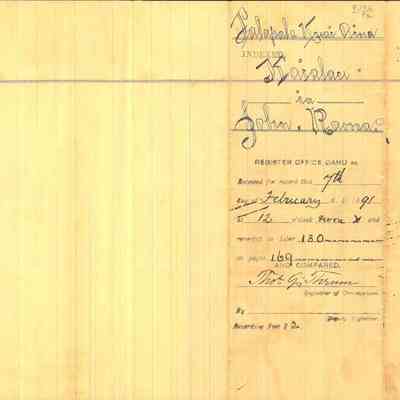 Palapala Kuai Aina
INDEXED
Kaialau
ia
John
REGISTER OFFICE OAHU ss.
Received for record this 7th
day of February A. D. 1891
at 12 o'clock noon M and
recorded in Liber 130
on page 169
AND COMPARED.
Thos. G. Thrum
Registrar of Conveyances
By
Deputy Registrar.
Recording Fees $ 2.